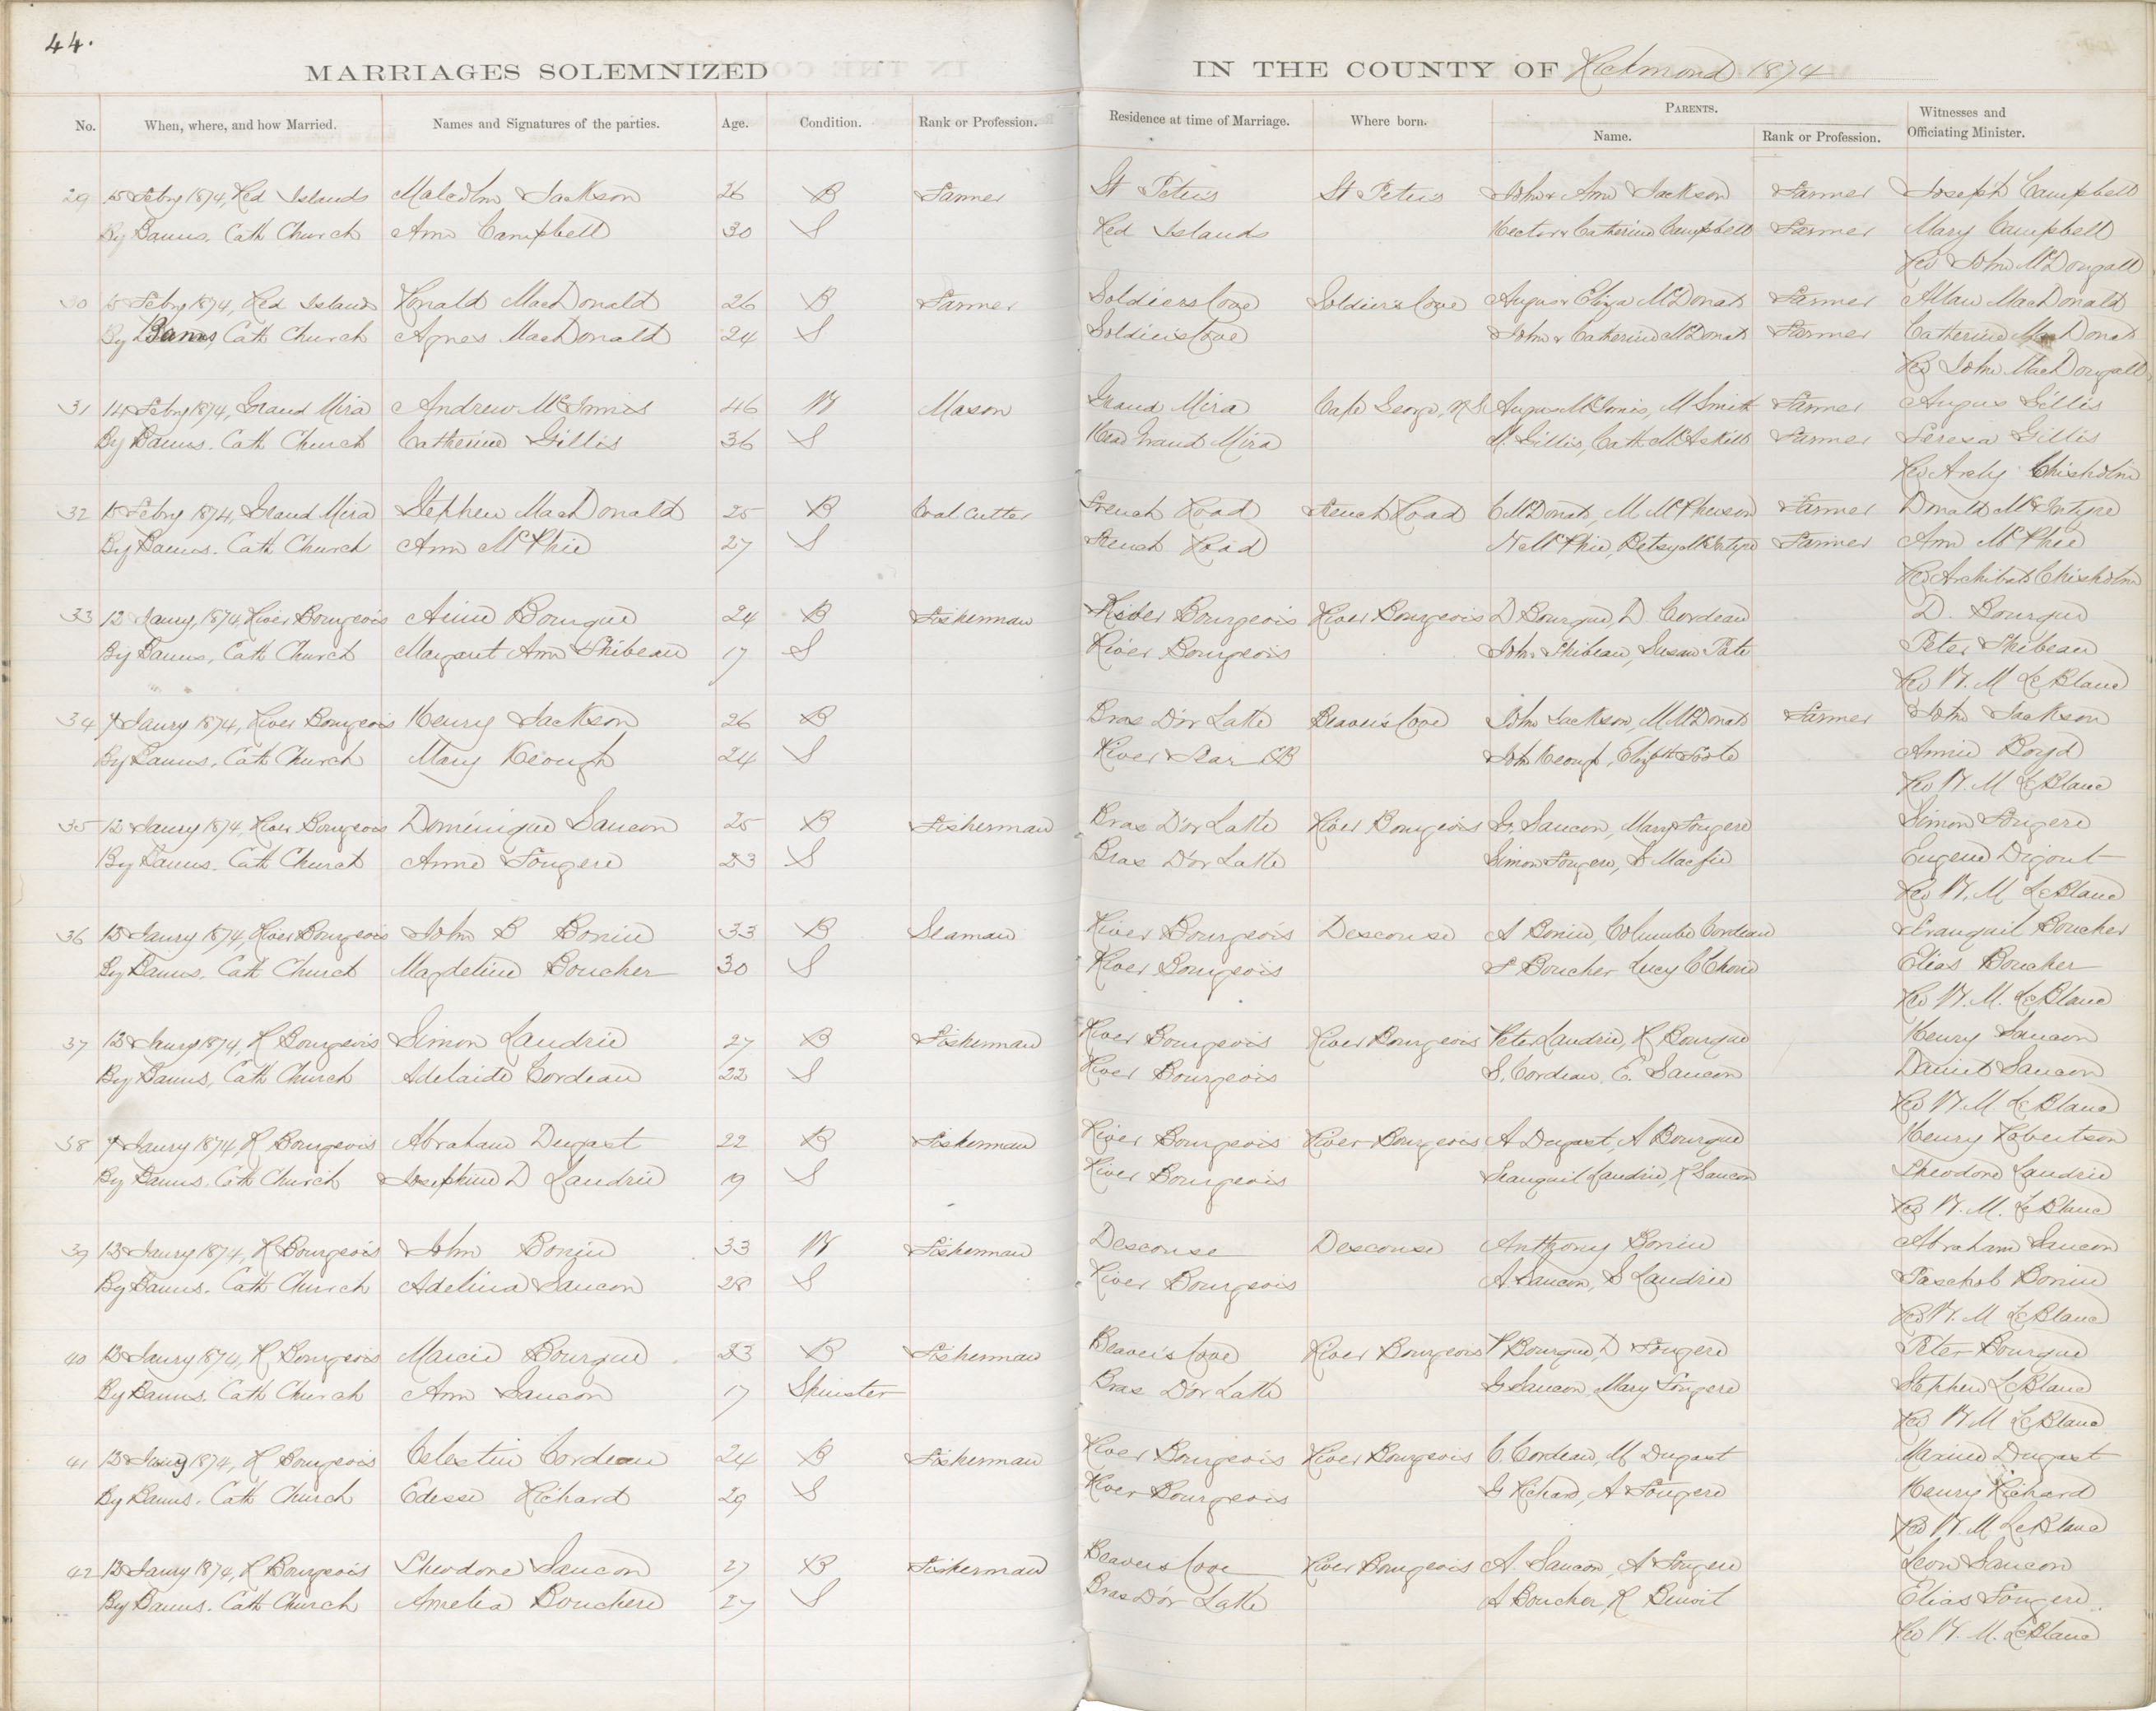 44.
MARRIAGES SOLEMNIZED IN THE COUNTY OF Richmond 1874
No. When, where, and how Married. Names and Signatures of the parties. Age. Condition. Rank or Profession. Residence at time of Marriage. Where born. PARENTS. Name. Rank or Profession. Witnesses and Officiating Minister.
29 15 Febry 1874, Red Islands Malcolm Jackson 26 B Farmer St Peters St Peters John & Ann Jackson Farmer Joseph Campbell
By Banns. Cath Church Ann Campbell 30 S Red Islands Hector & Catherine Campbell Farmer Mary Campbell
Rev John McDougall
30 15 Febry 1874, Red Islands Ronald MacDonald 26 B Farmer Soldiers Cove Soldiers Cove Angus & Eliza McDonald Farmer Allan MacDonald
By Banns, Cath Church Agnes MacDonald 24 S Soldiers Cove John & Catherine McDonald Farmer Catherine MacDonald
Rev John MacDougall
31 14 Febry 1874, Grand Mira Andrew McInnis 46 W Mason Grand Mira Cape George, N.S. Angus McInnis, M Smith Farmer Angus Gillis
By Banns. Cath Church Catherine Gillis 36 S Head Grand Mira M. Gillis, Cath McAskill Farmer Teresa Gillis
Rev Archy Chisholm
32 15 Febry 1874, Grand Mira Stephen MacDonald 25 B Coal Cutter French Road French Road C McDonald, M McPherson Farmer Donald McIntyre
By Banns. Cath Church Ann McPhie 27 S French Road N McPhie, Betsy McIntyre Farmer Ann McPhee
Rev Archibald Chisholm
33 12 Jaury, 1874, River Bourgeois Aime Bourque 24 B Fisherman River Bourgeois River Bourgeois D Bourque, D Cordeau D. Bourque
By Banns, Cath Church Margaret Ann Thibeau 17 S River Bourgeois John Thibeau, Susan Pate Peter Thibeau
Rev W. M LeBlanc
34 7 Jaury 1874, River Bourgeois Henry Jackson 26 B Bras D'or Latte Beaver's Cove John Jackson, M McDonald Farmer John Jackson
By Banns. Cath Church Mary Keough 24 S River CB John Keough, Elizth Annie Boyd
Rev W. M LeBlanc
35 12 Jaury 1874, River Bourgeois Dominique Saucon 25 B Fisherman Bras D'or Latte River Bourgeois G. Saucon, Mary Fougere Simon Fougere
By Banns. Cath Church Anne Fougere 23 S Bras D'or Latte Simon Fougere, Eugene Digout
Rev W. M LeBlanc
36 12 Jaury 1874, River Bourgeois John B Boniu 33 B Seaman River Bourgeois Descouse A Boniu, Columbe Cordeau Tranquil Boucher
By Banns. Cath Church Magdeline Boucher 30 S River Bourgeois Boucher Lucy Elias Boucher
Rev W. M. LeBlanc
37 12 Jaury 1874, R Bourgeois Simon Landrie 27 B Fisherman River Bourgeois River Bourgeois Peter Landrie, R Bourque Henry Saucon
By Banns, Cath Church Adelaide Cordeau 22 S River Bourgeois S. Cordeau, E. Saucon Daniel Saucon
Rev W. M. LeBlanc
38 7 Jaury 1874, R Bourgeois Abraham Dugast 22 B Fisherman River Bourgeois River Bourgeois A Dugast, A Bourque Henry Robertson
By Banns. Cath Church Josephine D Landrie 19 S River Bourgeois Tranquil Landrie, R Saucon Theodore Landrie
Rev W. M. LeBlanc
39 12 Jaury 1874, R Bourgeois John Boniu 33 W Fisherman Descouse Descouse Anthony Boniu Abraham Saucon
By Banns. Cath Church Adelina Saucon 28 S River Bourgeois A. Saucon, S Landrie Paschal Boniu
Rev W. M LeBlanc
40 12 Jaury 1874, R Bourgeois Marcie Bourque 23 B Fisherman Beaver's Cove River Bourgeois P Bourque, D Fougere Peter Bourque
By Banns. Cath Church Ann Saucon 17 Spinster Bras D'or Latte G Saucon, Mary Fougere Stephen LeBlanc
Rev W M LeBlanc
41 12 Jaury 1874, R Bourgeois Celestin Cordeau 24 B Fisherman River Bourgeois River Bourgeois C. Cordeau, M Dugast Maxime Dugast
By Banns. Cath Church Edesse Richard 29 S River Bourgeois G Richard, A Fougere Henry Richard
Rev W. M. LeBlanc
42 12 Jaury 1874, R Bourgeois Theodore Saucon 27 B Fisherman Beavers Cove River Bourgeois A. Saucon, A Fougere Leon Saucon
By Banns. Cath Church Amelia Bouchere 27 S Bras D'or Latte A Boucher, R Benoit Elias Fougere
Rev W. M. LeBlanc